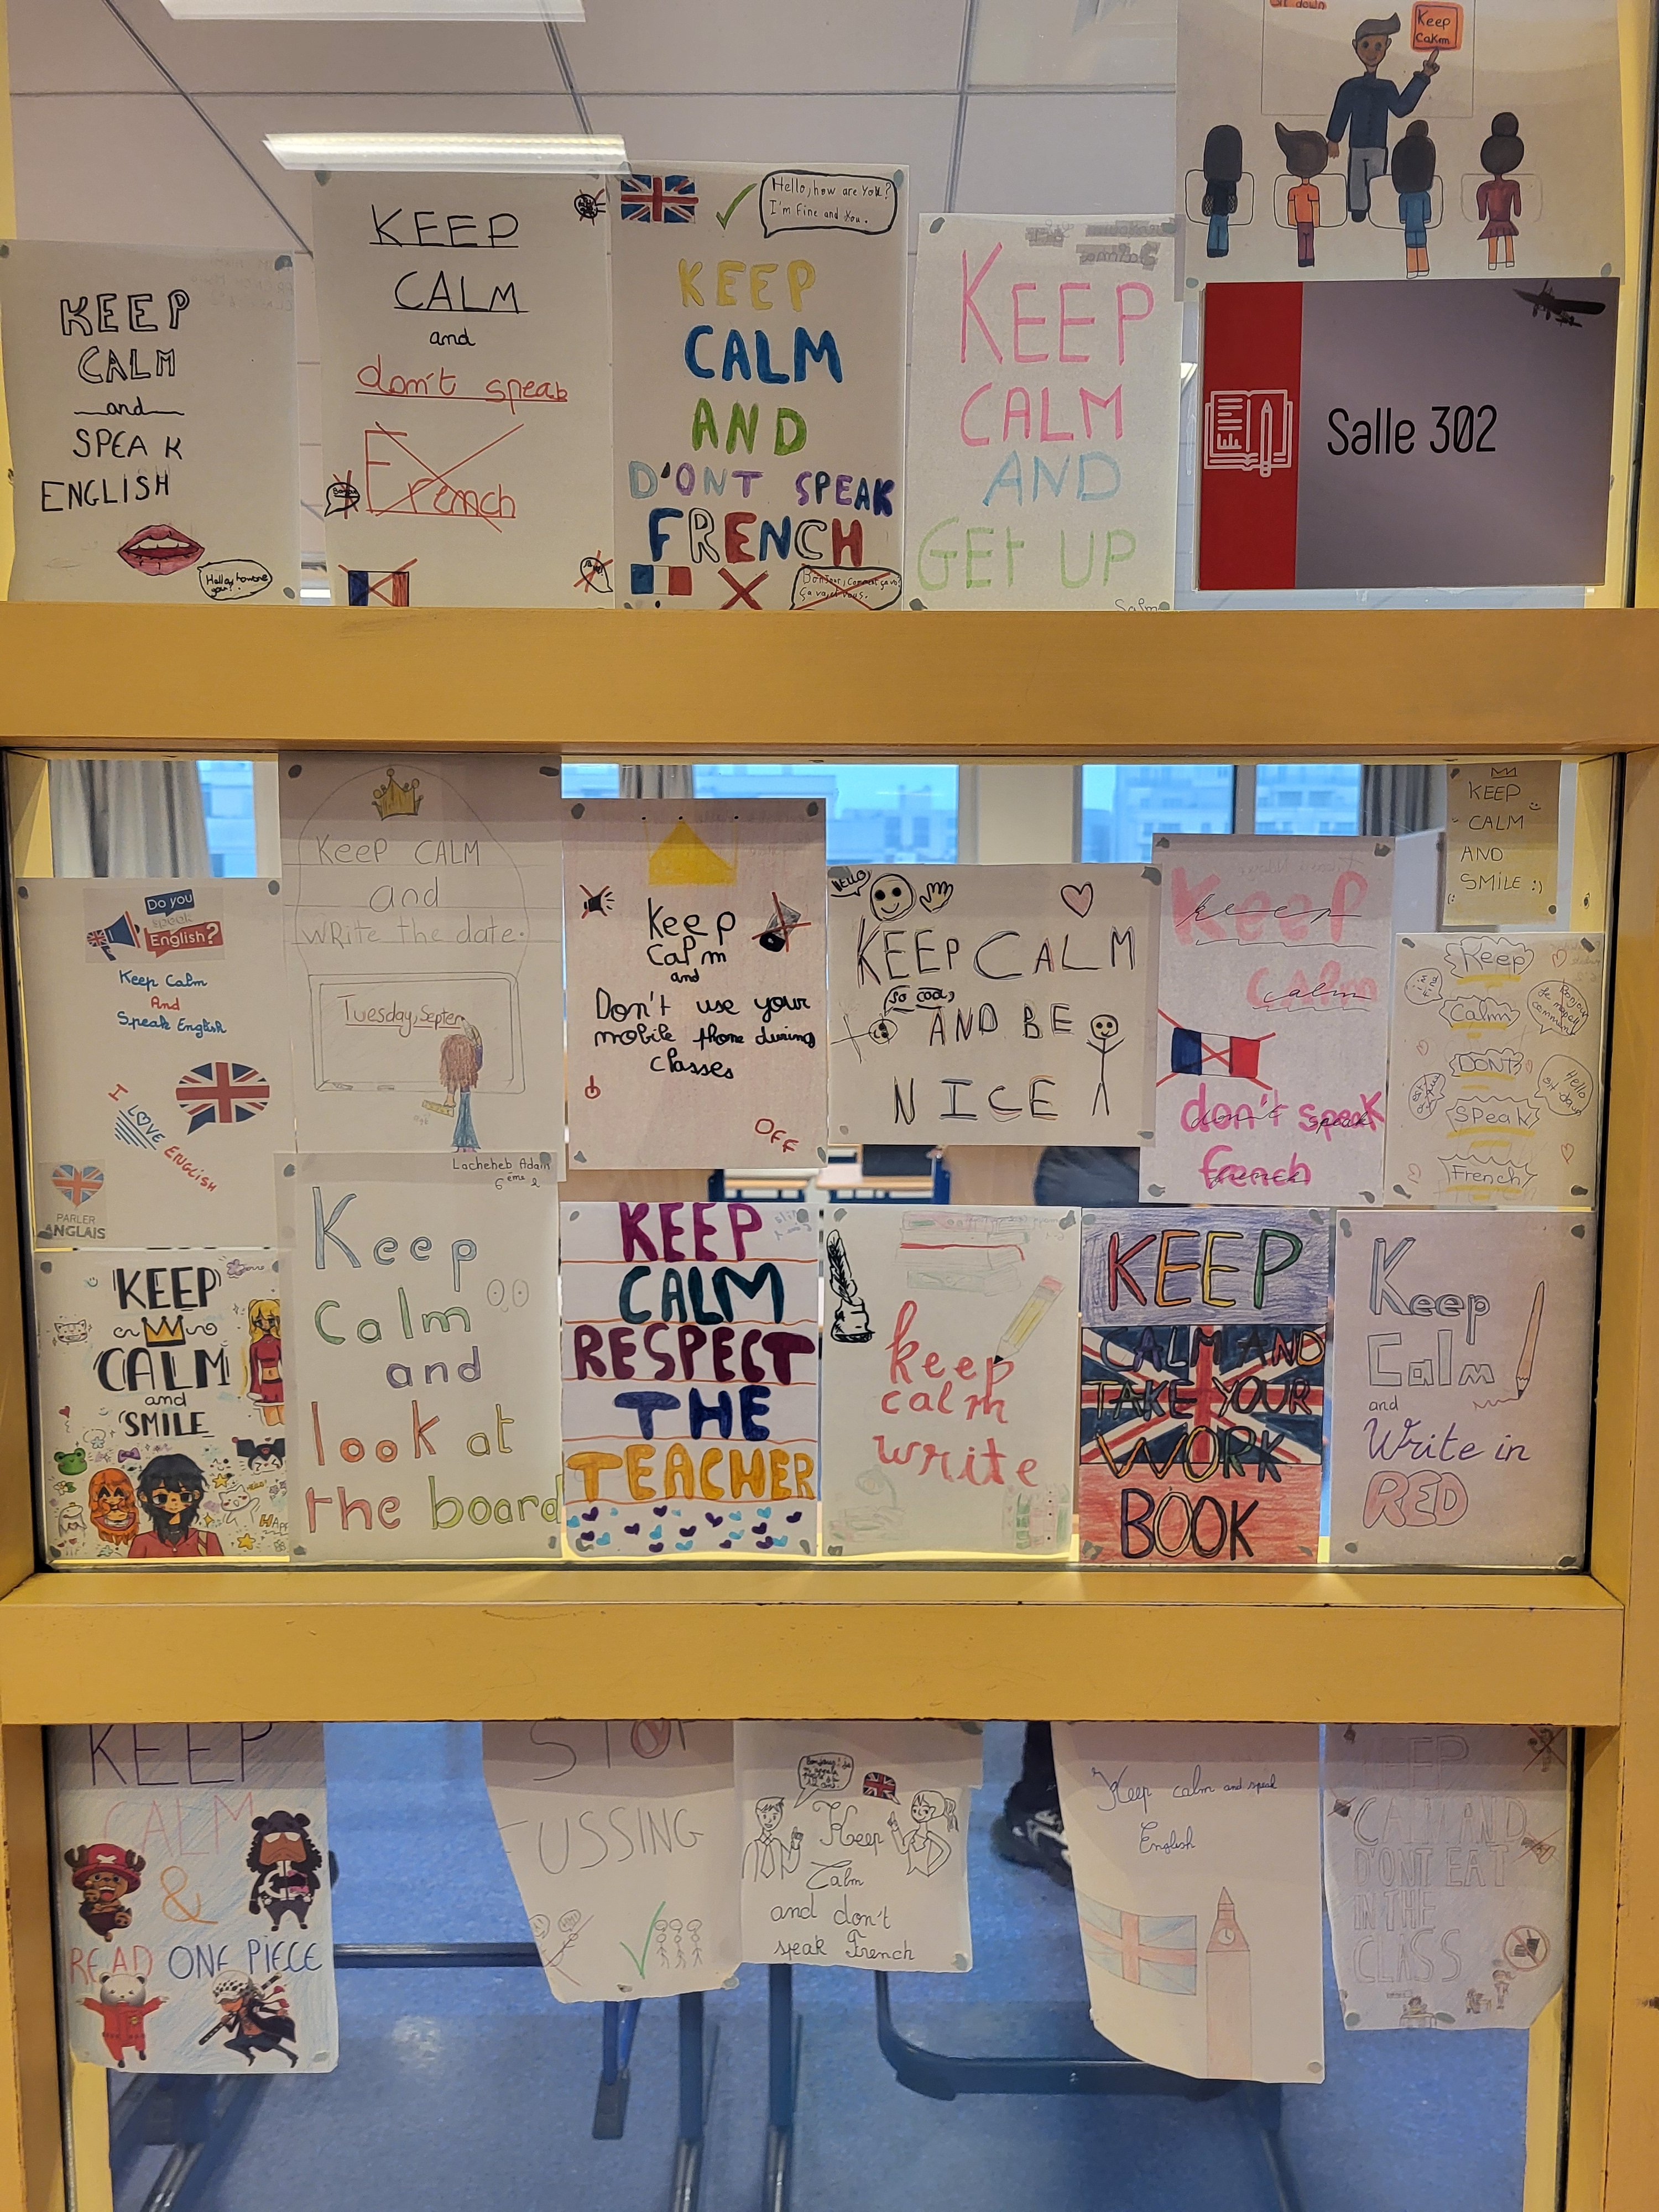 sit down
Keep
Cakm
KEEP
CALM
and
SPEAK
ENGLISH
KEEP
CALM
and
don't speak
French
Hello, how are You?
I'm Fine and You.
KEEP
CALM
AND
D'ONT SPEAK
FRENCH
Bonjour, Comment ça va?
Ça va, et vous.
KEEP
CALM
AND
GEt UP
Salle 302
Do you
speak
English?
Keep Calm
And
Speak English
I
LOVE
ENGLISH
PARLER
ANGLAIS
Keep CALM
and
WRite the date.
Tuesday, Septem
Keep
Calm
and
Don't use your
mobile phone during
classes
OFF
HELLO
KEEP CALM
SO COOL
AND BE
NICE
Keep
keep
Calm
calm
don't speak
don't speak
french
french
KEEP
CALM
AND
SMILE :)
Keep
Calm
DONT
SPeak
French
Hello
sit down
KEEP
CALM
and
SMILE
Lacheheb Adam
6ème 2
Keep
Calm
and
look at
the board
KEEP
CALM
RESPECT
THE
TEACHER
keep
calm
write
KEEP
CALM AND
TAKE YOUR
WORK
BOOK
Keep
Calm
and
Write in
RED
KEEP
CALM
&
READ ONE PIECE
STOP
FUSSING
Keep
Calm
and don't
speak French
Keep calm and speak
English
KEEP
CALM AND
D'ONT EAT
IN THE
CLASS